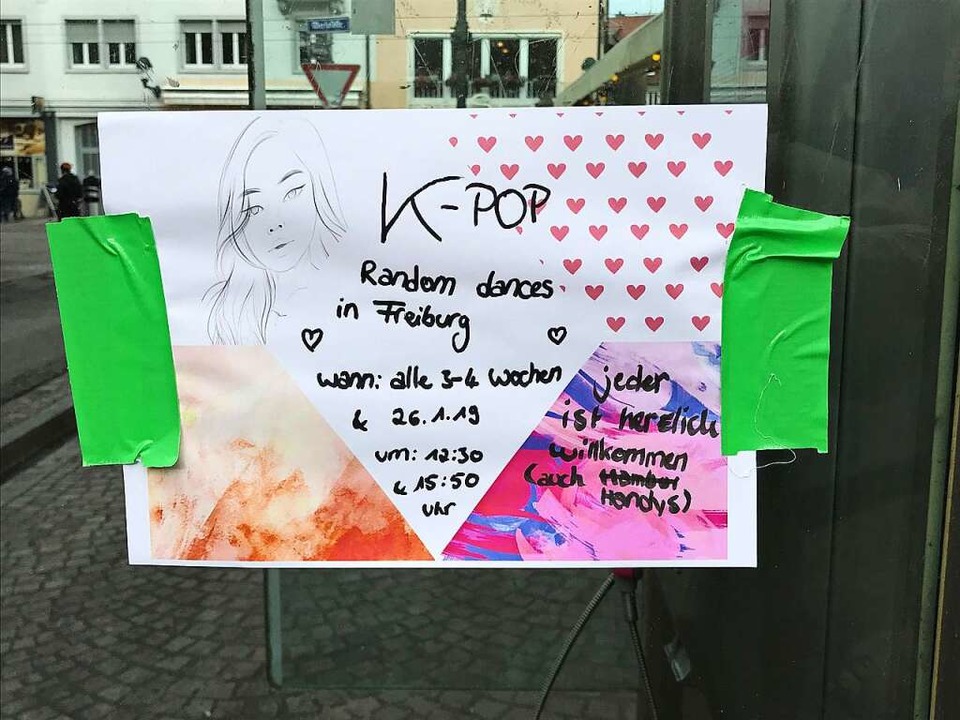 K-POP
Random dances
in Freiburg
wann: alle 3-4 Wochen
& 26.1.19
um: 12:30
& 15:50
Uhr
jeder
ist herzlich
willkommen
(auch
Handys)